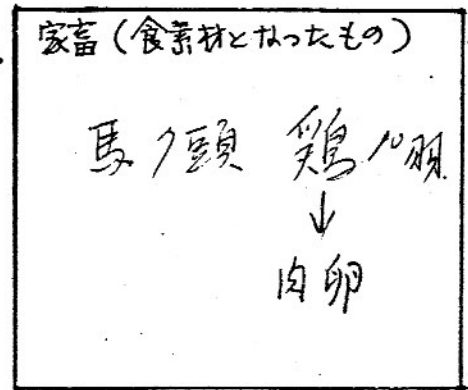 家畜（食素材となったもの）
馬1頭 鶏10羽
↓
肉卵